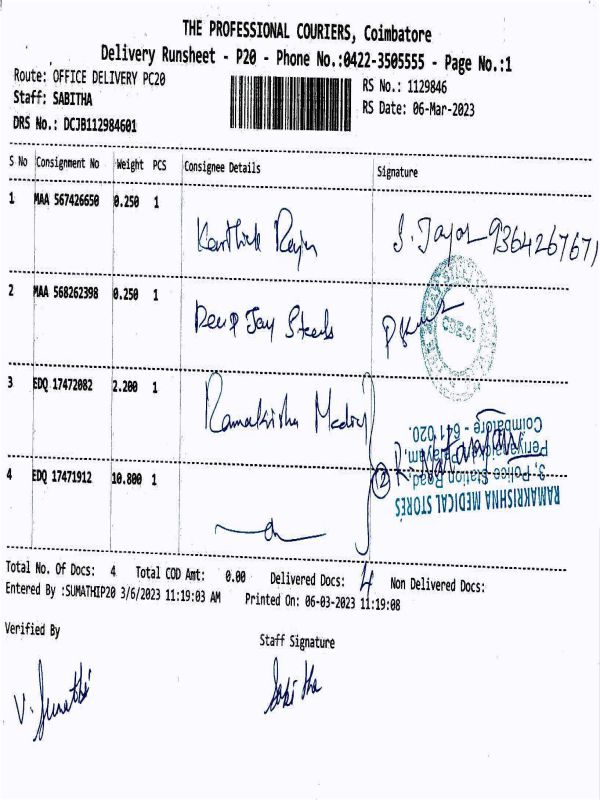 THE PROFESSIONAL COURIERS, Coimbatore
Delivery Runsheet - P20 - Phone No.:0422-3505555 - Page No.:1
Route: OFFICE DELIVERY PC20
RS No.: 1129846
Staff: SABITHA
RS Date: 06-Mar-2023
DRS No.: DCJB112984601
S No Consignment No Weight PCS Consignee Details Signature
1 MAA 567426650 0.250 1
Karthick Raju S. Jayor 9364267671
2 MAA 568262398 0.250 1
Deep Jay Steels P
3 EDQ 17472082 2.200 1
Ramakrishna
② R. Natarajan
4 EDQ 17471912 10.800 1
RAMAKRISHNA MEDICAL STORES
3, Police Station Road,
Coimbatore - 641 020.
Total No. Of Docs: 4 Total COD Amt: 0.00 Delivered Docs: 4 Non Delivered Docs:
Entered By :SUMATHIP20 3/6/2023 11:19:03 AM Printed On: 06-03-2023 11:19:08
Verified By Staff Signature
V. Sumathi Sabitha